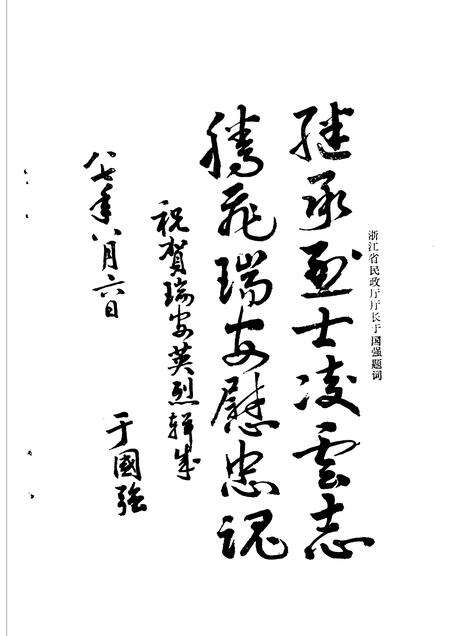 浙江省民政厅厅长于国强题词
继承烈士凌雲志
腾飛瑞安慰忠魂
祝贺瑞安英烈辑成
八七年八月六日
于國强